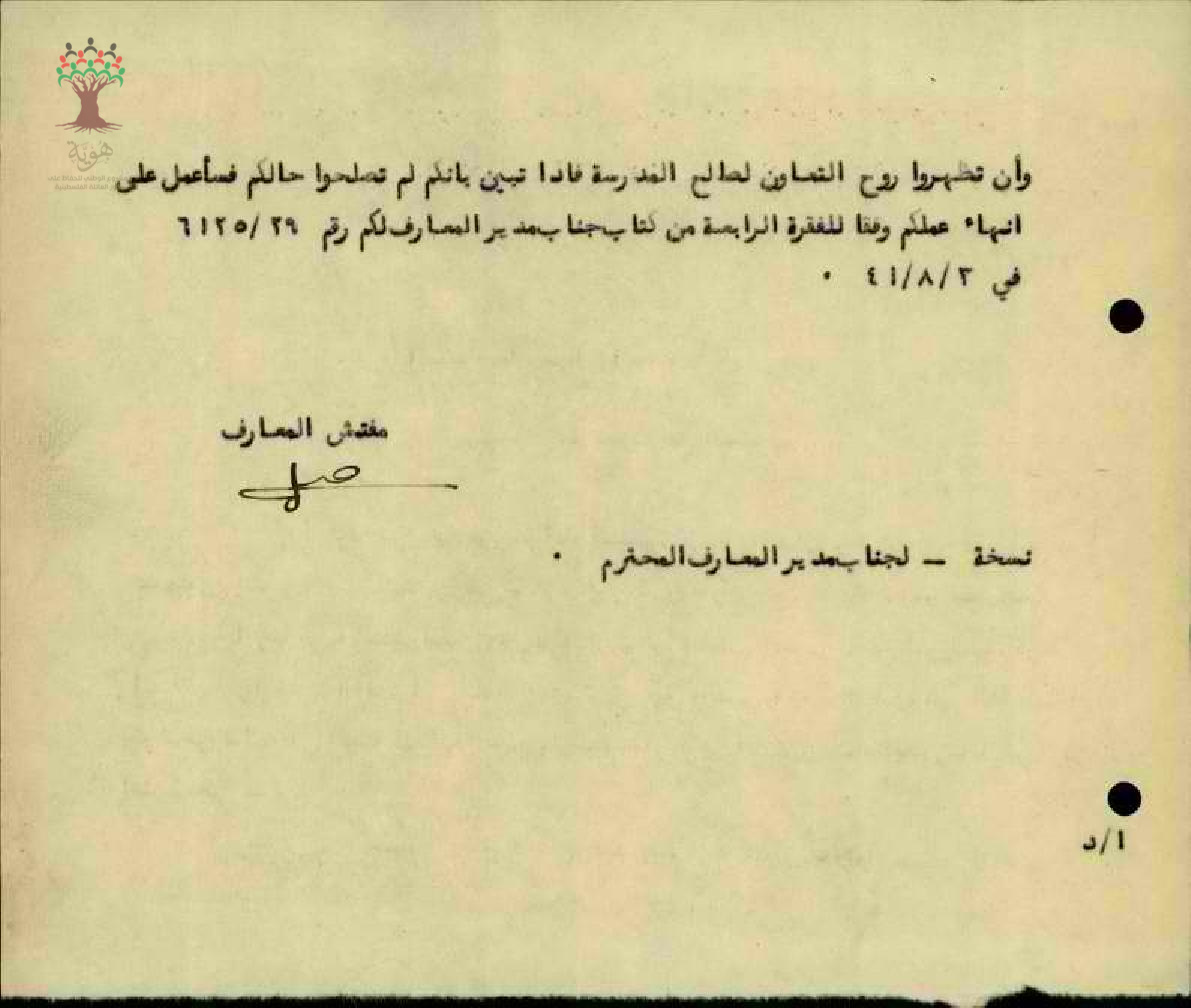 هوية
وأن تظهروا روح التعاون لصالح المدرسة فاذا تبين بانكم لم تصلحوا حالكم فسأعمل على
انهاء عملكم وفقا للفقرة الرابعة من كتاب جناب مدير المعارف لكم رقم ٦١٢٥/٢٩
في ٤١/٨/٢ ٠
مفتش المعارف
نسخة — لجناب مدير المعارف المحترم ٠
ا/د